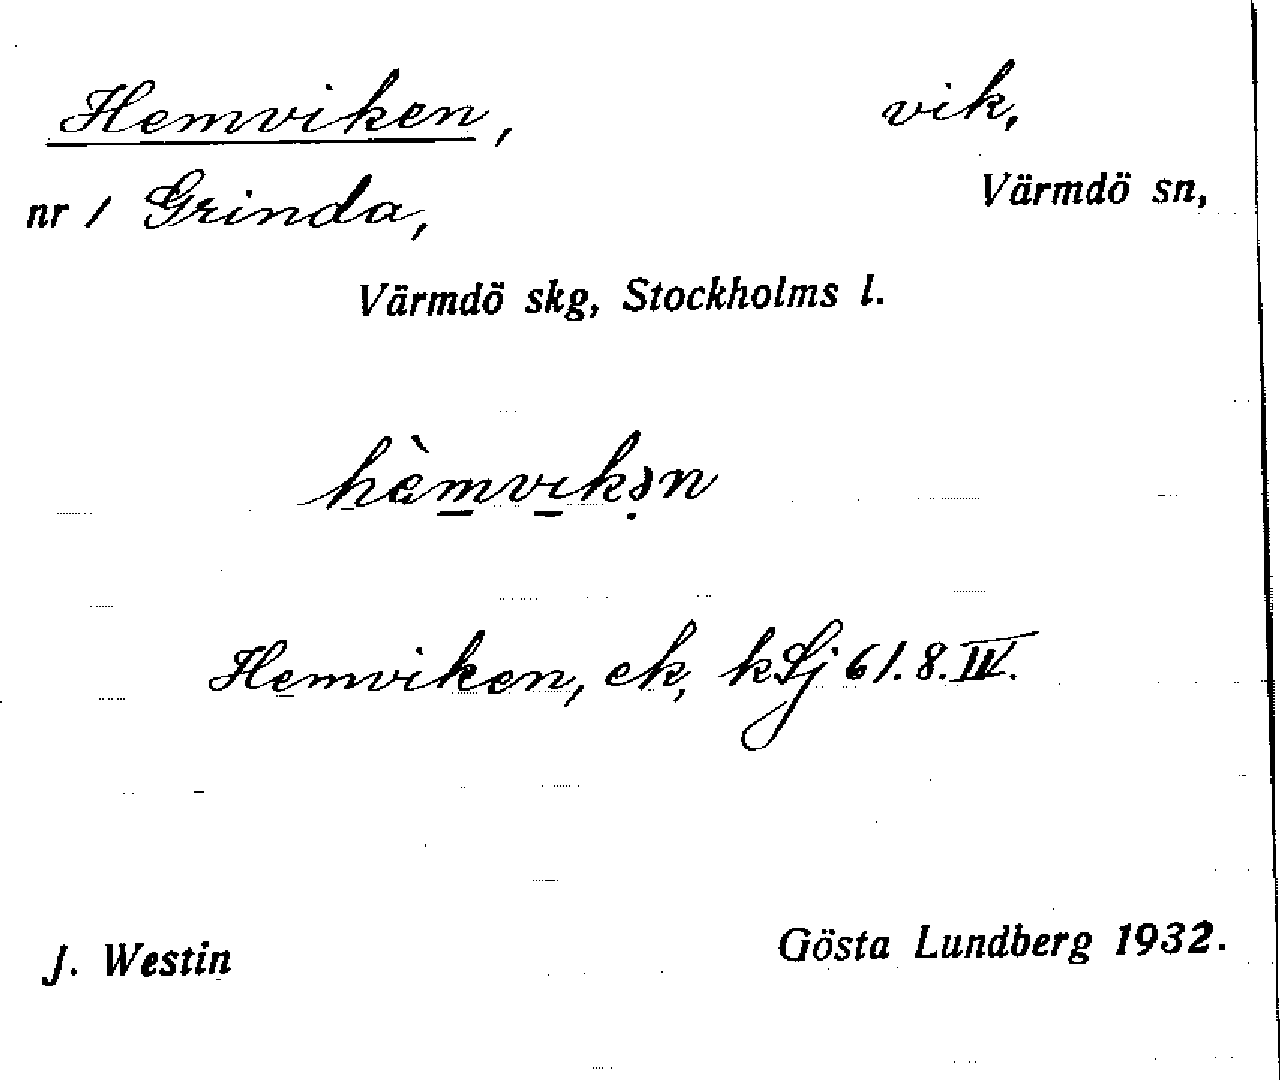 Hemviken, vik,
nr 1 Grinda, Värmdö sn,
Värmdö skg, Stockholms l.
hèmvikən
Hemviken, ek, kSj 61.8.IV.
J. Westin Gösta Lundberg 1932.